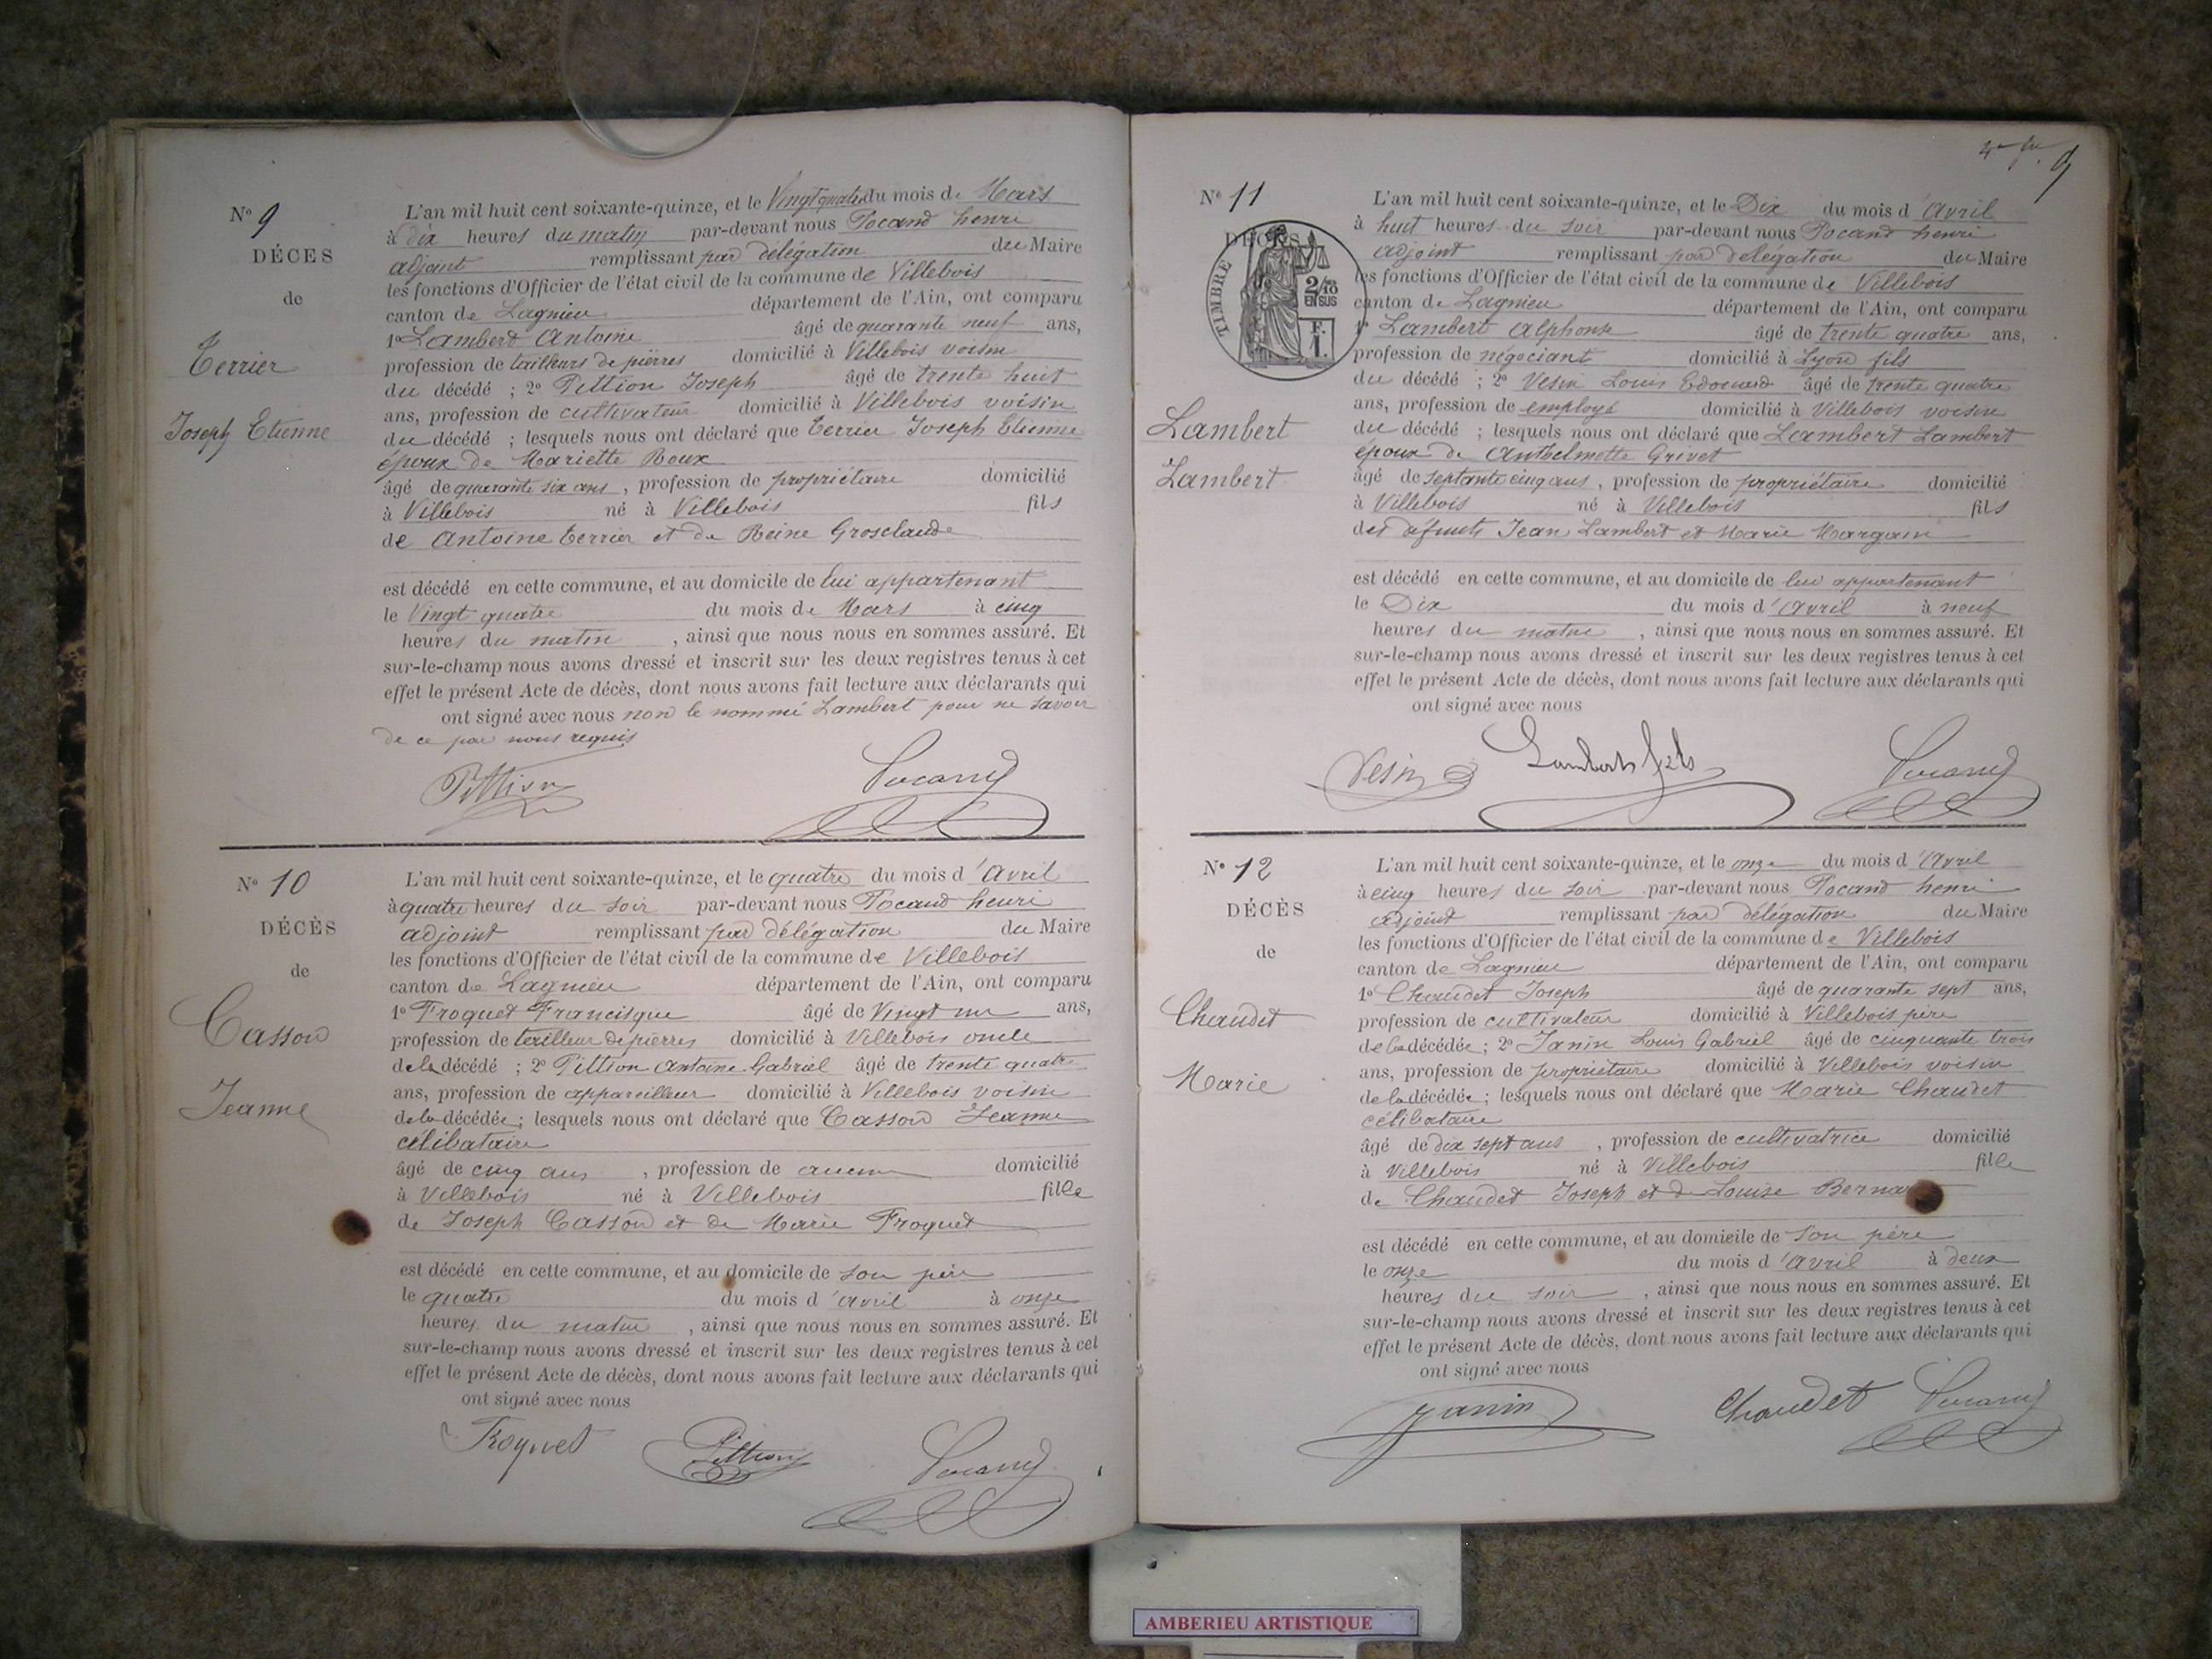 N° 9
DÉCES
de
Terrier
Joseph Etienne
L'an mil huit cent soixante-quinze, et le Vingt quatre du mois de Mars
à dix heures du matin par-devant nous Pocand henri
adjoint remplissant par délégation du Maire
les fonctions d'Officier de l'état civil de la commune de Villebois
canton de Lagnieu département de l'Ain, ont comparu
1° Lambert Antoine âgé de quarante neuf ans,
profession de tailleurs de pierres domicilié à Villebois voisin
du décédé ; 2° Pittion Joseph âgé de trente huit
ans, profession de cultivateur domicilié à Villebois voisin
du décédé ; lesquels nous ont déclaré que Terrier Joseph Etienne
époux de Mariette Roux
âgé de quarante six ans, profession de propriétaire domicilié
à Villebois né à Villebois fils
de Antoine Terrier et de Reine Grosclaude
est décédé en cette commune, et au domicile de lui appartenant
le Vingt quatre du mois de Mars à cinq
heures du matin, ainsi que nous nous en sommes assuré. Et
sur-le-champ nous avons dressé et inscrit sur les deux registres tenus à cet
effet le présent Acte de décès, dont nous avons fait lecture aux déclarants qui
ont signé avec nous non le nommé Lambert pour ne savoir
de ce par nous requis
Pittion Pocand
N° 10
DÉCÈS
de
Casson
Jeanne
L'an mil huit cent soixante-quinze, et le quatre du mois d'Avril
à quatre heures du soir par-devant nous Pocand henri
adjoint remplissant par délégation du Maire
les fonctions d'Officier de l'état civil de la commune de Villebois
canton de Lagnieu département de l'Ain, ont comparu
1° Froquet Francisque âgé de Vingt un ans,
profession de tailleur de pierres domicilié à Villebois oncle
de la décédé ; 2° Pittion Antoine Gabriel âgé de trente quatre
ans, profession de appareilleur domicilié à Villebois voisin
de la décédée ; lesquels nous ont déclaré que Casson Jeanne
célibataire
âgé de cinq ans, profession de aucune domicilié
à Villebois né à Villebois fille
de Joseph Casson et de Marie Froquet
est décédé en cette commune, et au domicile de son père
le quatre du mois d'avril à onze
heures du matin, ainsi que nous nous en sommes assuré. Et
sur-le-champ nous avons dressé et inscrit sur les deux registres tenus à cet
effet le présent Acte de décès, dont nous avons fait lecture aux déclarants qui
ont signé avec nous
Froquet Pittion Pocand
9
N° 11
DÉCÈS
TIMBRE
2/10
EN SUS
Lambert
Lambert
L'an mil huit cent soixante-quinze, et le Dix du mois d'Avril
à huit heures du soir par-devant nous Pocand henri
adjoint remplissant par délégation du Maire
les fonctions d'Officier de l'état civil de la commune de Villebois
canton de Lagnieu département de l'Ain, ont comparu
1° Lambert Alphonse âgé de trente quatre ans,
profession de négociant domicilié à Lyon fils
du décédé ; 2° Vesin Louis Edouard âgé de trente quatre
ans, profession de employé domicilié à Villebois voisin
du décédé ; lesquels nous ont déclaré que Lambert Lambert
époux de Anthelmette Grivet
âgé de septante cinq ans, profession de propriétaire domicilié
à Villebois né à Villebois fils
des defunts Jean Lambert et Marie Margain
est décédé en cette commune, et au domicile de lui appartenant
le Dix du mois d'Avril à neuf
heures du matin, ainsi que nous nous en sommes assuré. Et
sur-le-champ nous avons dressé et inscrit sur les deux registres tenus à cet
effet le présent Acte de décès, dont nous avons fait lecture aux déclarants qui
ont signé avec nous
Vesin Lambert fils Pocand
N° 12
DÉCÈS
de
Chaudet
Marie
L'an mil huit cent soixante-quinze, et le onze du mois d'Avril
à cinq heures du soir par-devant nous Pocand henri
adjoint remplissant par délégation du Maire
les fonctions d'Officier de l'état civil de la commune de Villebois
canton de Lagnieu département de l'Ain, ont comparu
1° Chaudet Joseph âgé de quarante sept ans,
profession de cultivateur domicilié à Villebois père
de la décédée ; 2° Janin Louis Gabriel âgé de cinquante trois
ans, profession de propriétaire domicilié à Villebois voisin
de la décédée ; lesquels nous ont déclaré que Marie Chaudet
célibataire
âgé de dix sept ans, profession de cultivatrice domicilié
à Villebois né à Villebois fille
de Chaudet Joseph et de Louise
est décédé en cette commune, et au domicile de son père
le onze du mois d'avril à deux
heures du soir, ainsi que nous nous en sommes assuré. Et
sur-le-champ nous avons dressé et inscrit sur les deux registres tenus à cet
effet le présent Acte de décès, dont nous avons fait lecture aux déclarants qui
ont signé avec nous
Janin Chaudet Pocand
AMBERIEU ARTISTIQUE